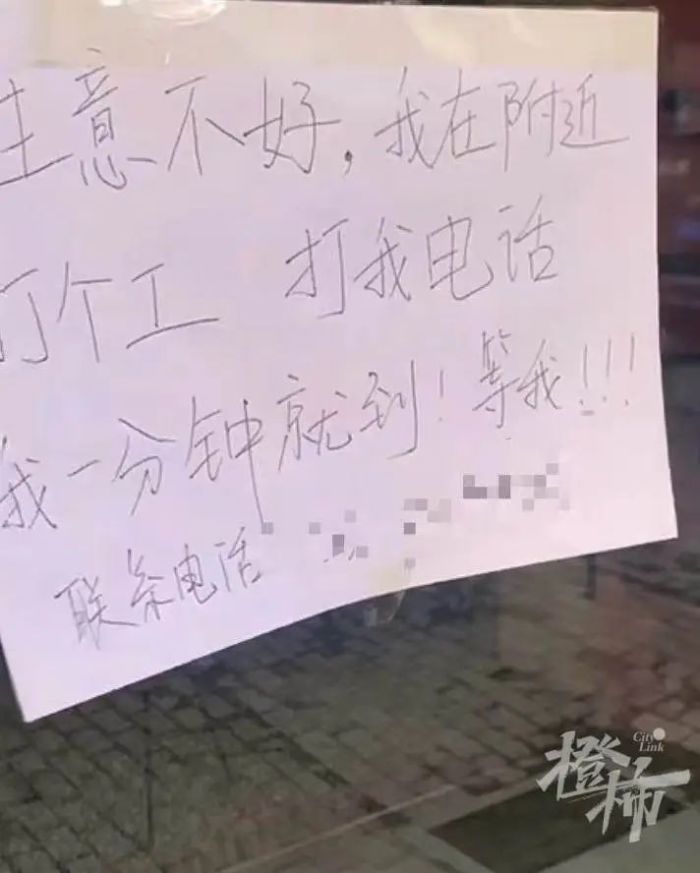 生意不好,我在附近
打个工 打我电话
我一分钟就到!等我!!!
联系电话
City Link
橙柿